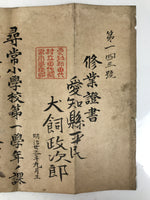 第一四三號
修業證書
愛知縣平民
犬飼政次郎
明治廿三年九月生
尋常小學校第一學年ノ課